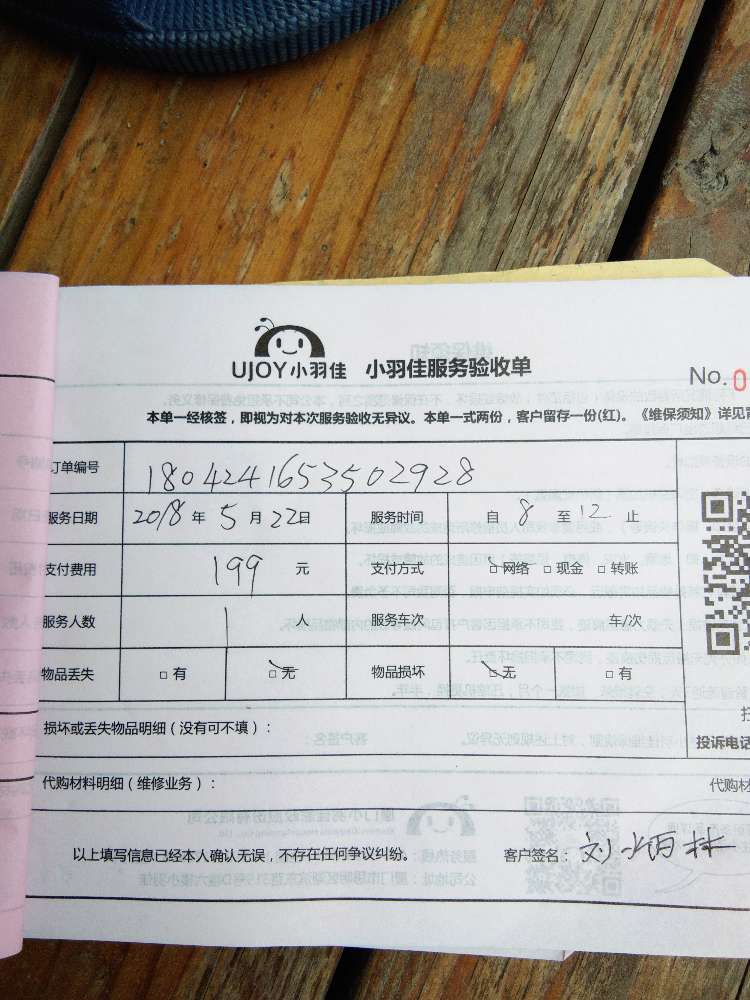 UJOY小羽佳 小羽佳服务验收单
No. 0
本单一经核签，即视为对本次服务验收无异议。本单一式两份，客户留存一份(红)。《维保须知》详见
订单编号 1804241653502928
服务日期 2018 年 5 月 22日 服务时间 自 8 至 12 止
支付费用 199 元 支付方式 □网络 □现金 □转账
服务人数 1 人 服务车次 车/次
物品丢失 □有 □无 物品损坏 □无 □有
损坏或丢失物品明细（没有可不填）：
投诉电话
代购材料明细（维修业务）： 代购材
以上填写信息已经本人确认无误，不存在任何争议纠纷。 客户签名： 刘炳林